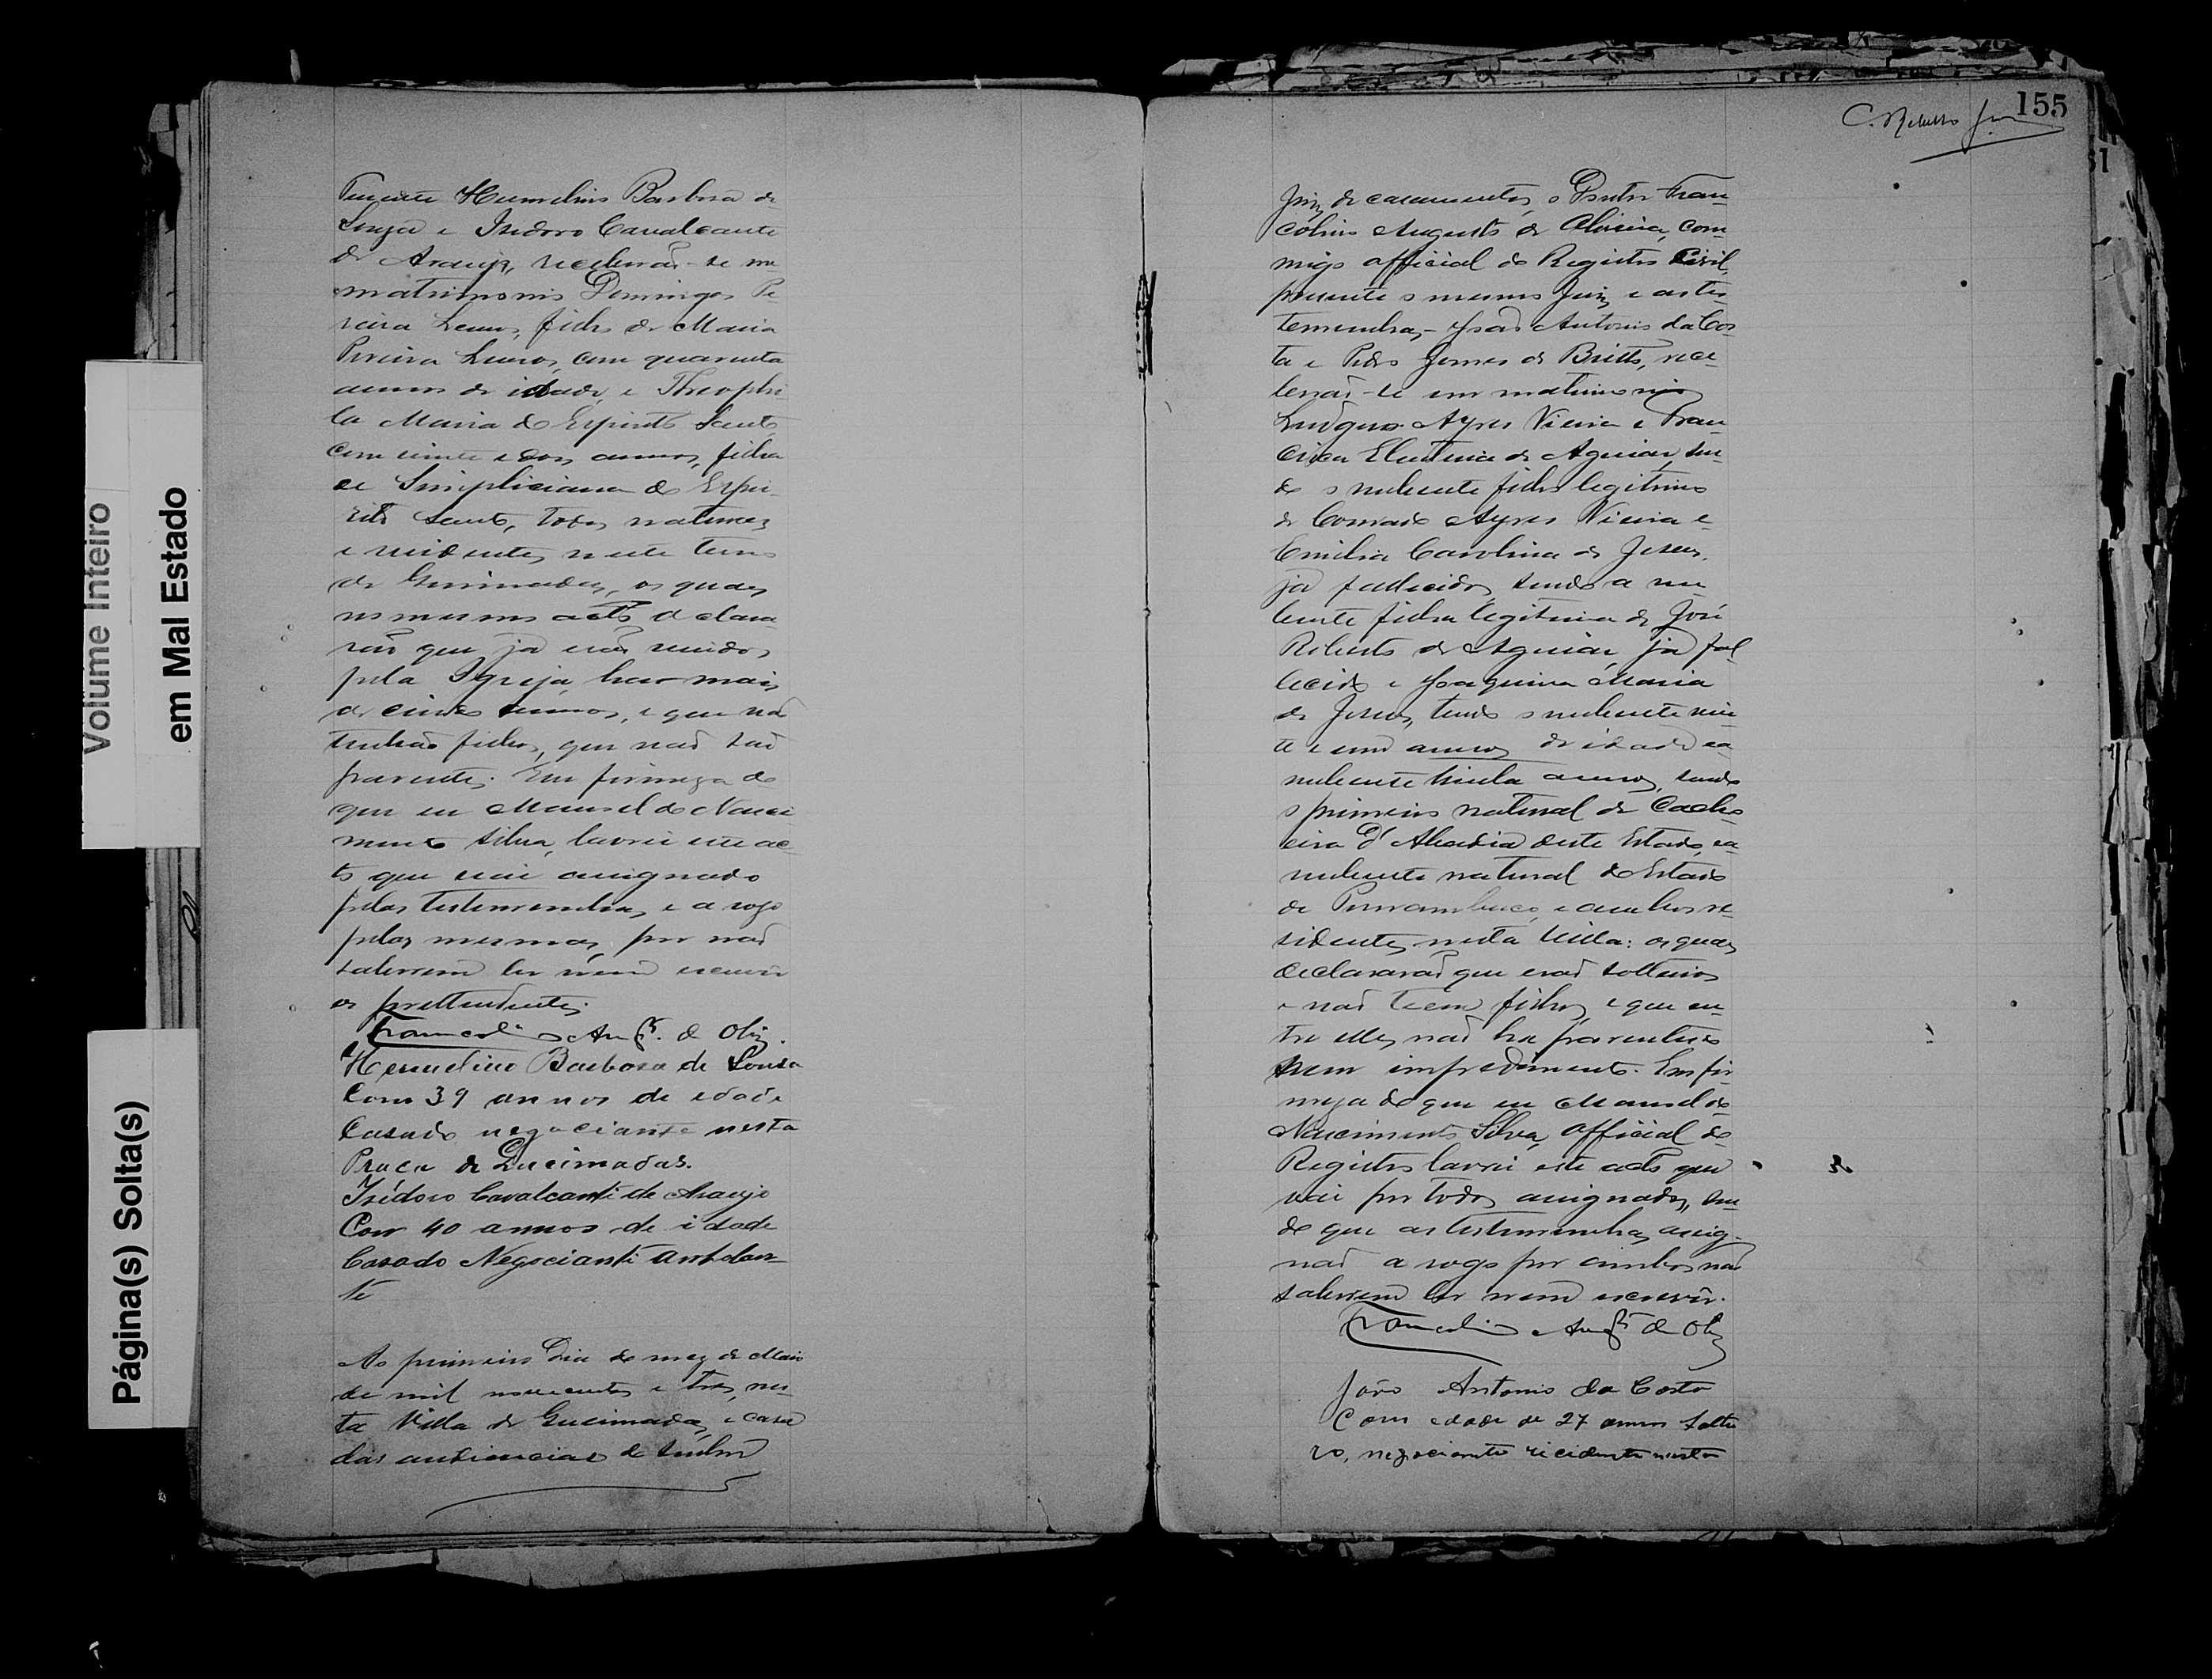 Volume Inteiro
em Mal Estado
Página(s) Solta(s)
Tenente Hermelino Barbosa de
Souza e Isidoro Cavalcante
de Araujo, receberão-se em
matrimonio Domingos Pe
reira Lemos, filho de Maria
Pereira Lemos, com quarenta
annos de idade, e Theophi
la Maria do Espirito Santo,
com vinte e dois annos, filha
de Simpliciana do Espi-
rito Santo, todos naturaes
e residentes neste termo
de Queimadas, os quaes
no mesmo acto decla-
rão que já erão unidos
pela Igreja, mais
de cinco annos, e que não
tinhão filhos, que não são
parentes. Em firmeza do
que eu Manoel do Nasci
mento Silva, lavrei este ac-
to que vai assignado
pelas testemunhas, e a rogo
pelas mesmas, por não
saberem ler nem escrever
os prettendentes.
Francolino Augto. de Olivra.
Hermelino Barbosa de Souza
Com 39 annos de edade
Casado negociante nesta
Praça de Queimadas.
Isidoro Cavalcanti de Araujo
Com 40 annos de idade
Casado Negocianti ambolan-
te
Ao primeiro dia do mez de Maio
de mil novecentos e tres, nes-
ta Villa de Queimadas, e casa
das audiencias do senhor
155
Juiz de casamentos, o Doutor Fran-
colino Augusto de Oliveira, com-
migo official do Registro Civil,
presente o mesmo Juiz e as tes-
temunhas, João Antonio da Cos
ta e Pedro Gomes de Britto, rece-
berão-se em matrimonio
Ayres Vieira e Fran-
cisca Eleuteria de Aguiar, sen-
do o nubente filho legitimo
de Conrado Ayres Vieira e
Emilia Carolina de Jesus,
já fallecidos, sendo a nu
bente filha legitima de José
Roberto de Aguiar, já fal
lecido e Joaquina Maria
de Jesus, tendo o nubente vin
te e um annos de idade e a
nubente trinta annos, sendo
o primeiro natural de Cacho
eira d'Abadia deste Estado, e a
nubente natural do Estado
de Pernambuco, e ambos re-
sidentes nesta Villa: os quaes
declararão que erão solteiros
e não teem filhos, e que en-
tre elles não ha parentesco
nem impedimento. Em fir
meza do que eu Manoel do
Nascimento Silva, Official do
Registro lavrei este acto que
vai por todos assignados, sen-
do que as testemunhas assig-
não a rogo por ambos não
saberem ler nem escrever.
Francolino Augto de Olivra
João Antonio da Costa
Com edade de 27 annos soltei
ro, negociante recidente nesta